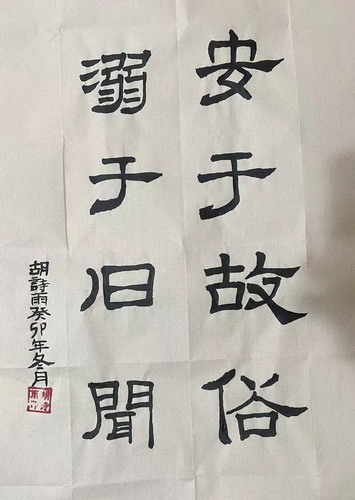 安于故俗
溺于旧聞
胡詩雨癸卯年冬月